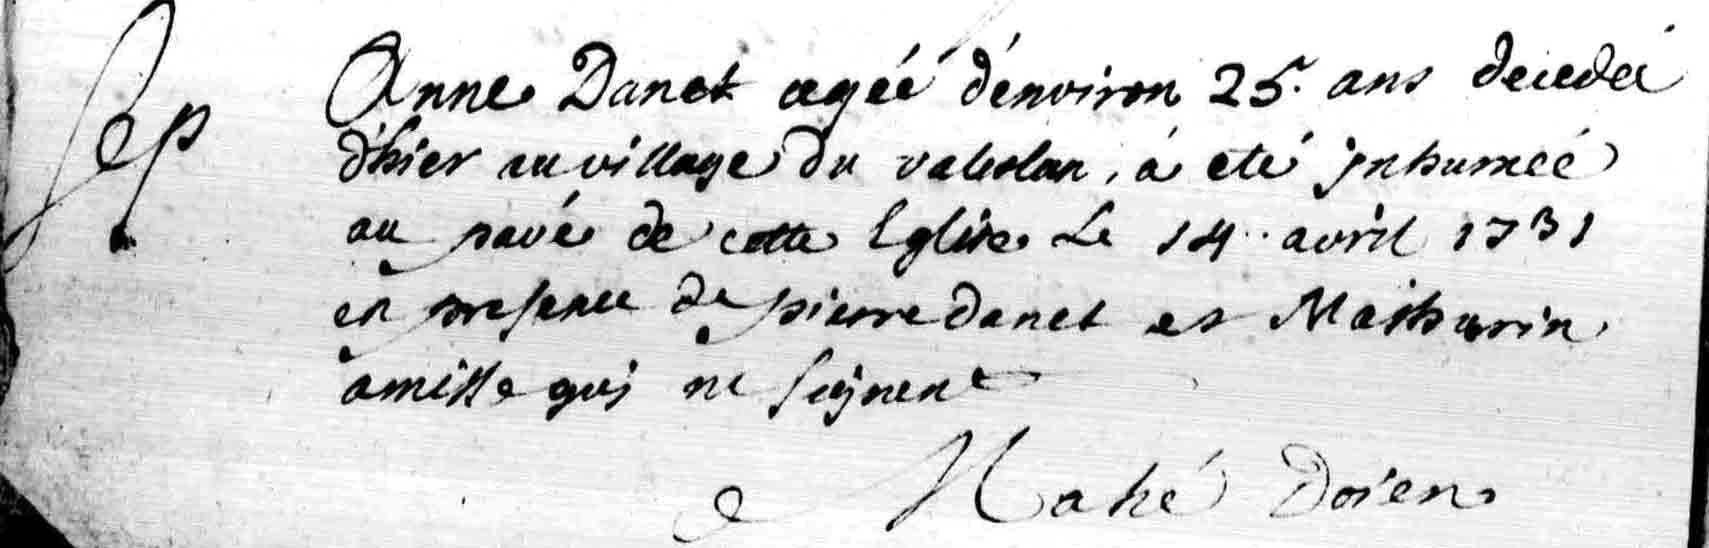 Sep
Anne Danet agéé d'énviron 25. ans decedéé
d'hier au village du valolan, á eté jnhuméé
au pavé de cette Eglise Le 14. avril 1731
en presence de pierre danet et Mathurin
amisse qui ne signent
Mahé Doien